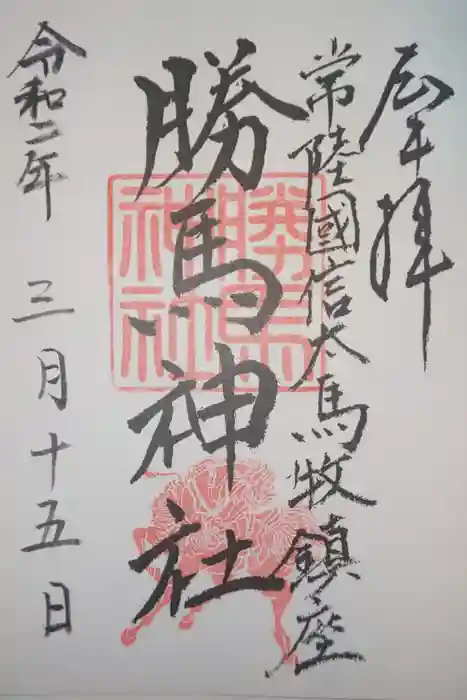 奉拝
常陸國信太馬牧鎮座
勝馬神社
令和二年 三月十五日
勝馬神社